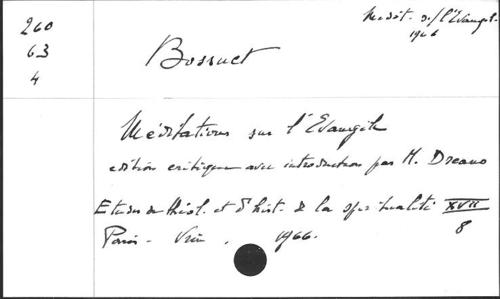 260
63
4
Médit. s/ l'Evangile
1966
Bossuet
Méditations sur l'Evangile
edition critique avec introduction par M. Dreano
Etudes de théol. et d'hist. de la spiritualité XVII
8
Paris - Vrin, 1966.